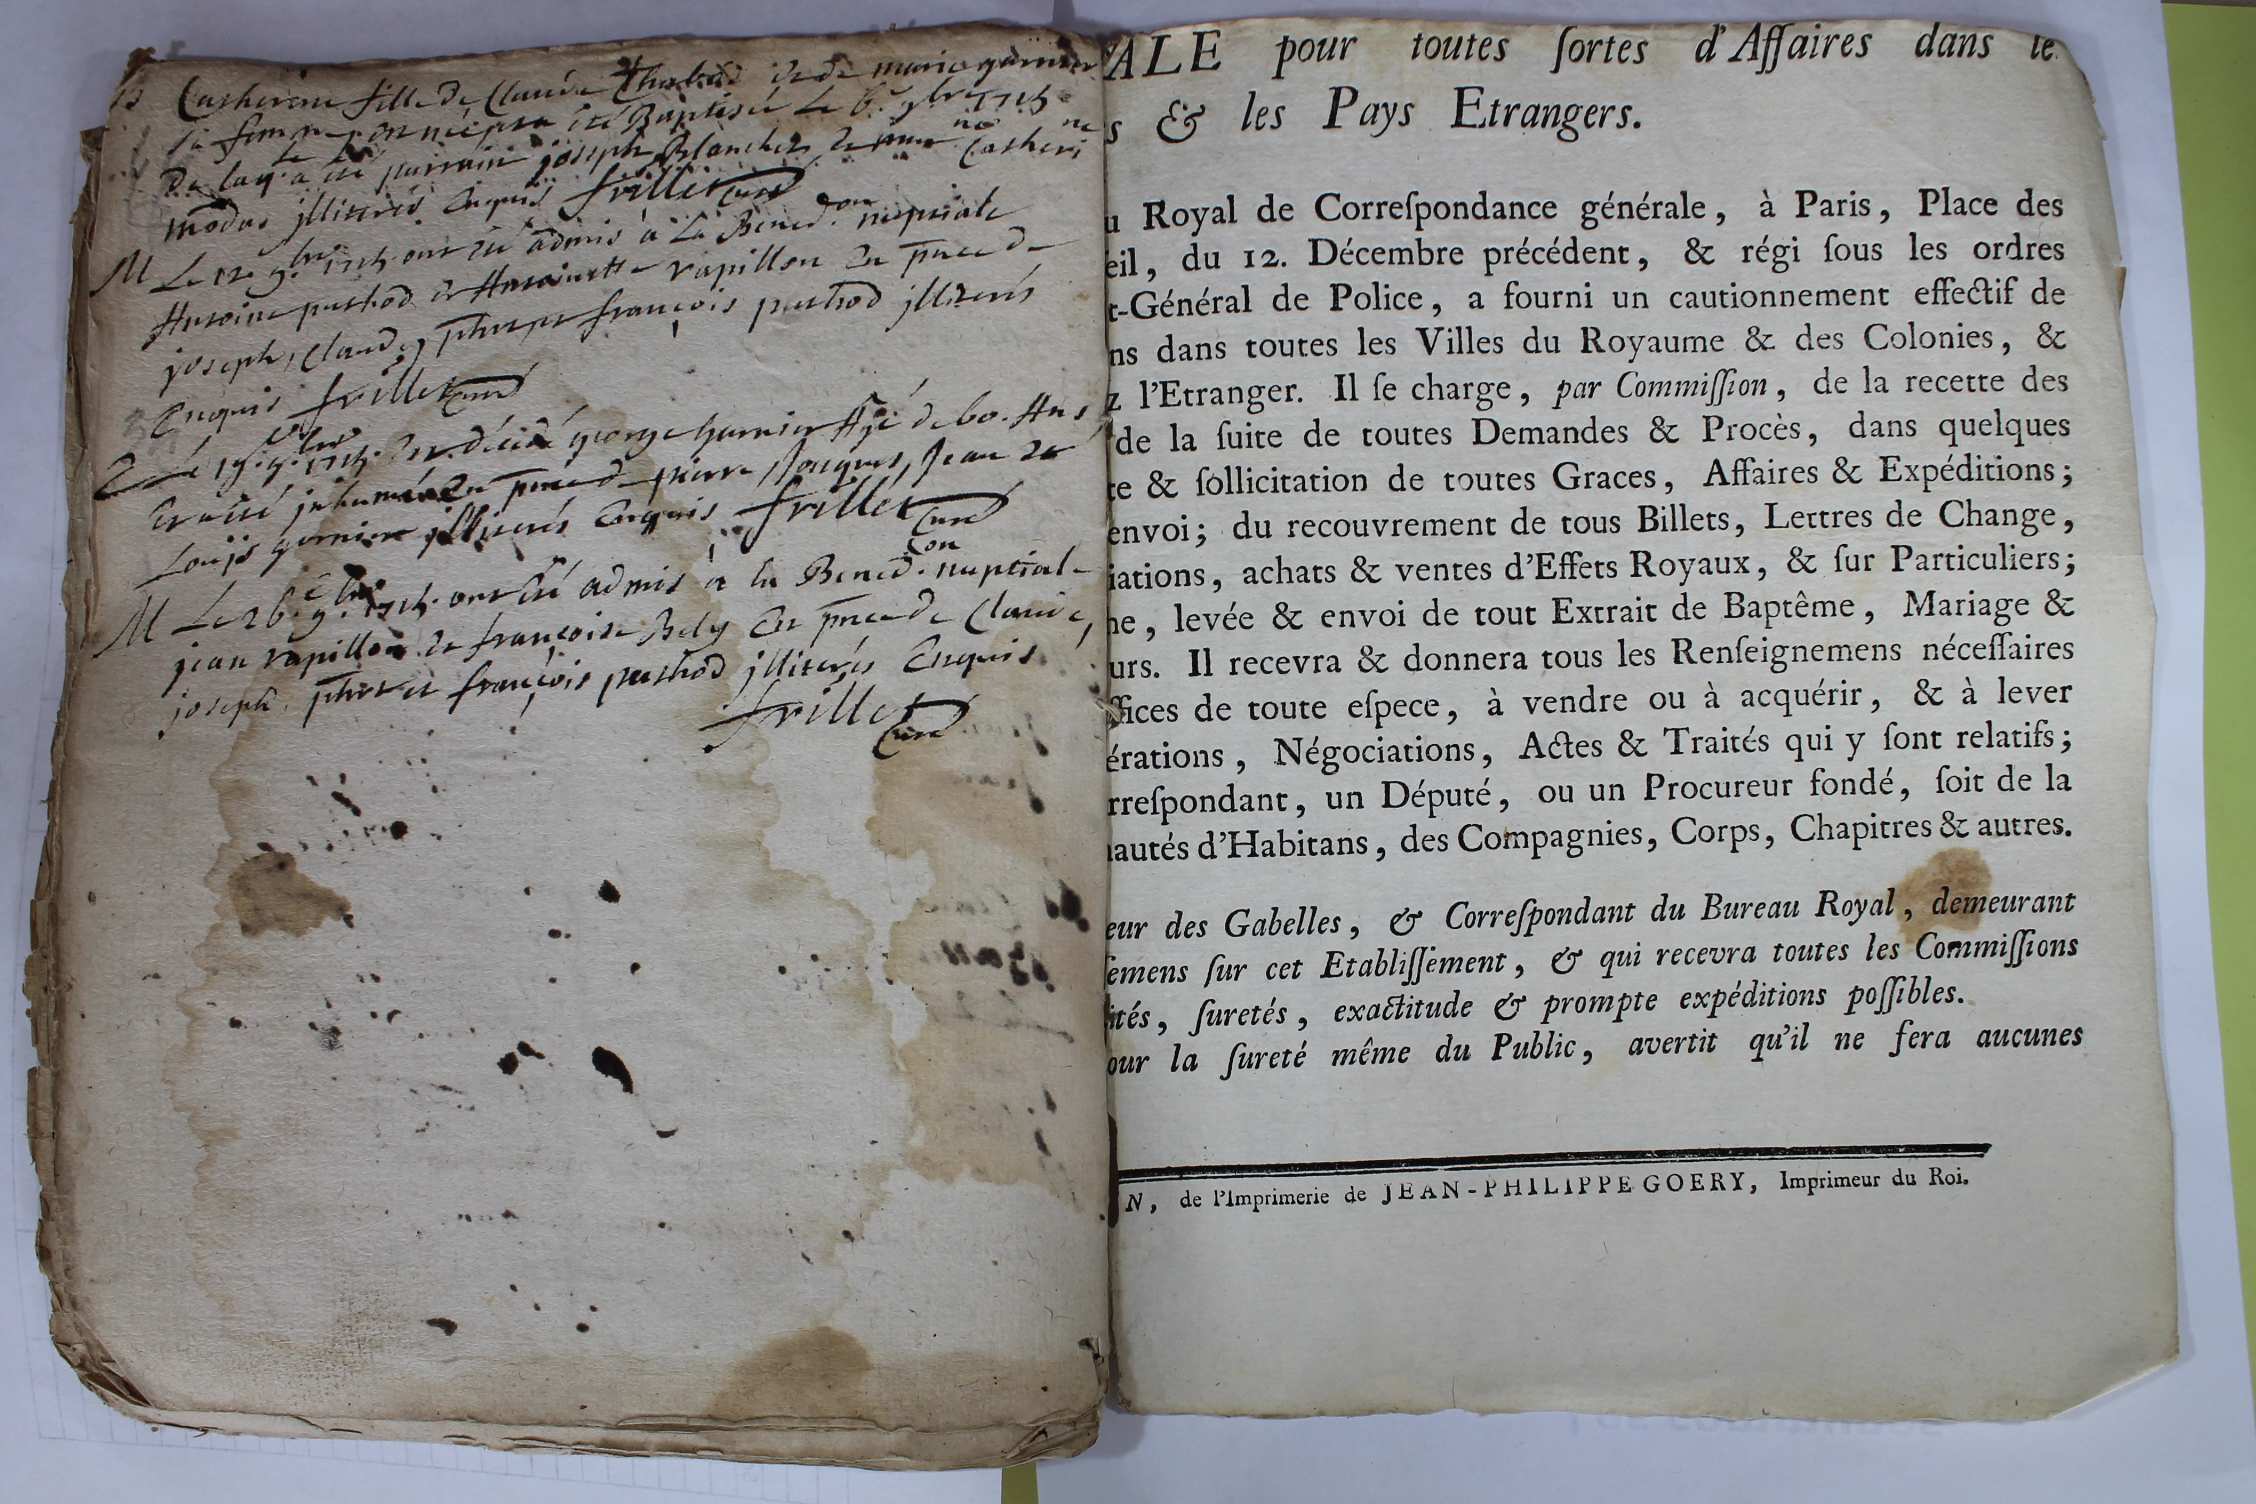 Catherine fille de Claude et de marie garnier
sa femme est née et a été Baptisée Le 6e 9bre 1715
Le parrain joseph Blanchet et mne Catherine
illiterés Enquis frillet curé
M Le 12e 9bre 1715 ont été admis à La Bened.on nuptiale
Antoine puthod et Antoinette rapillon En pnce de
joseph, Claude, et françois puthod illiterés
Enquis frillet curé
Le 19e 9bre 1715 Est décédé george garnier Agé de 60 Ans
et a été inhumé En pnce de pierre, Jacques, Jean et
Louis garnier illiterés Enquis frillet curé
M Le 26e 9bre 1715 ont été admis à la Bened.on nuptiale
jean rapillon et françoise Bely En pnce de Claude,
joseph et françois puthod illiterés Enquis
frillet curé
ALE pour toutes ſortes d'Affaires dans le
s & les Pays Etrangers.
u Royal de Correſpondance générale, à Paris, Place des
eil, du 12. Décembre précédent, & régi ſous les ordres
t-Général de Police, a fourni un cautionnement effectif de
ns dans toutes les Villes du Royaume & des Colonies, &
z l'Etranger. Il ſe charge, par Commiſſion, de la recette des
de la ſuite de toutes Demandes & Procès, dans quelques
te & ſollicitation de toutes Graces, Affaires & Expéditions;
envoi; du recouvrement de tous Billets, Lettres de Change,
iations, achats & ventes d'Effets Royaux, & ſur Particuliers;
ne, levée & envoi de tout Extrait de Baptême, Mariage &
urs. Il recevra & donnera tous les Renſeignemens néceſſaires
ffices de toute eſpece, à vendre ou à acquérir, & à lever
érations, Négociations, Actes & Traités qui y ſont relatifs;
rreſpondant, un Député, ou un Procureur fondé, ſoit de la
nautés d'Habitans, des Compagnies, Corps, Chapitres & autres.
eur des Gabelles, & Correſpondant du Bureau Royal, demeurant
ſemens ſur cet Etabliſſement, & qui recevra toutes les Commiſſions
ités, ſuretés, exactitude & prompte expéditions poſſibles.
our la ſureté même du Public, avertit qu'il ne fera aucunes
N, de l'Imprimerie de JEAN-PHILIPPE GOERY, Imprimeur du Roi.